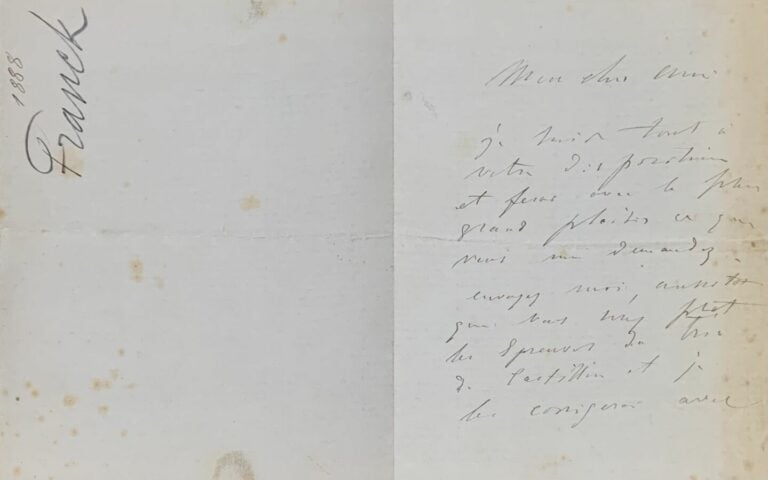 1888
Franck
Mon cher ami
je suis tout à
votre disposition
et ferai avec le plus
grand plaisir ce que
vous me demandez
envoyez moi, aussitôt
que vous serez prêt
les Epreuves du Trio
de Castillon et je
les corrigerai avec